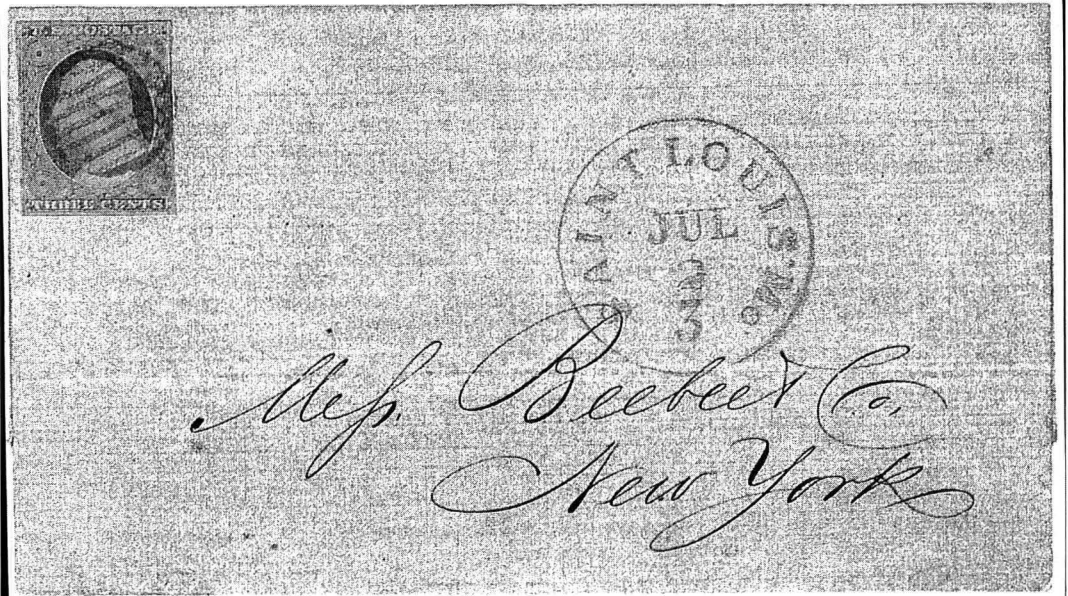 U.S. POSTAGE.
THREE CENTS
SAINT LOUIS Mo.
JUL
Meſs. Beebee & Co.,
New York